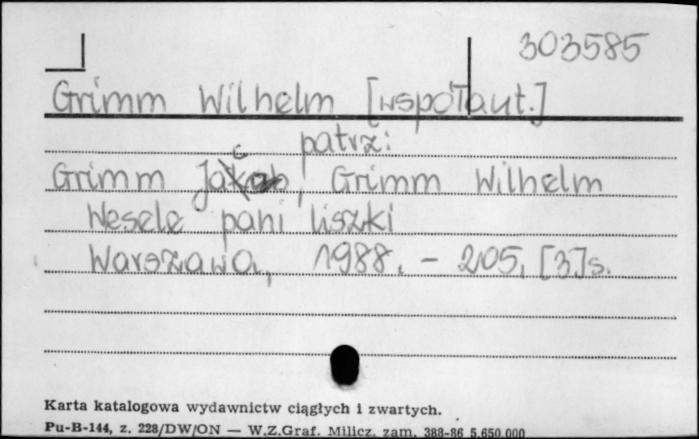 303585
Grimm Wilhelm [współaut.]
patrz:
Grimm Jacob, Grimm Wilhelm
Wesele pani liszki
Warszawa, 1988. - 205, [3]s.
Karta katalogowa wydawnictw ciągłych i zwartych.
Pu-B-144, z. 228/DW/ON — W.Z.Graf. Milicz, zam. 388-86 5.650.000